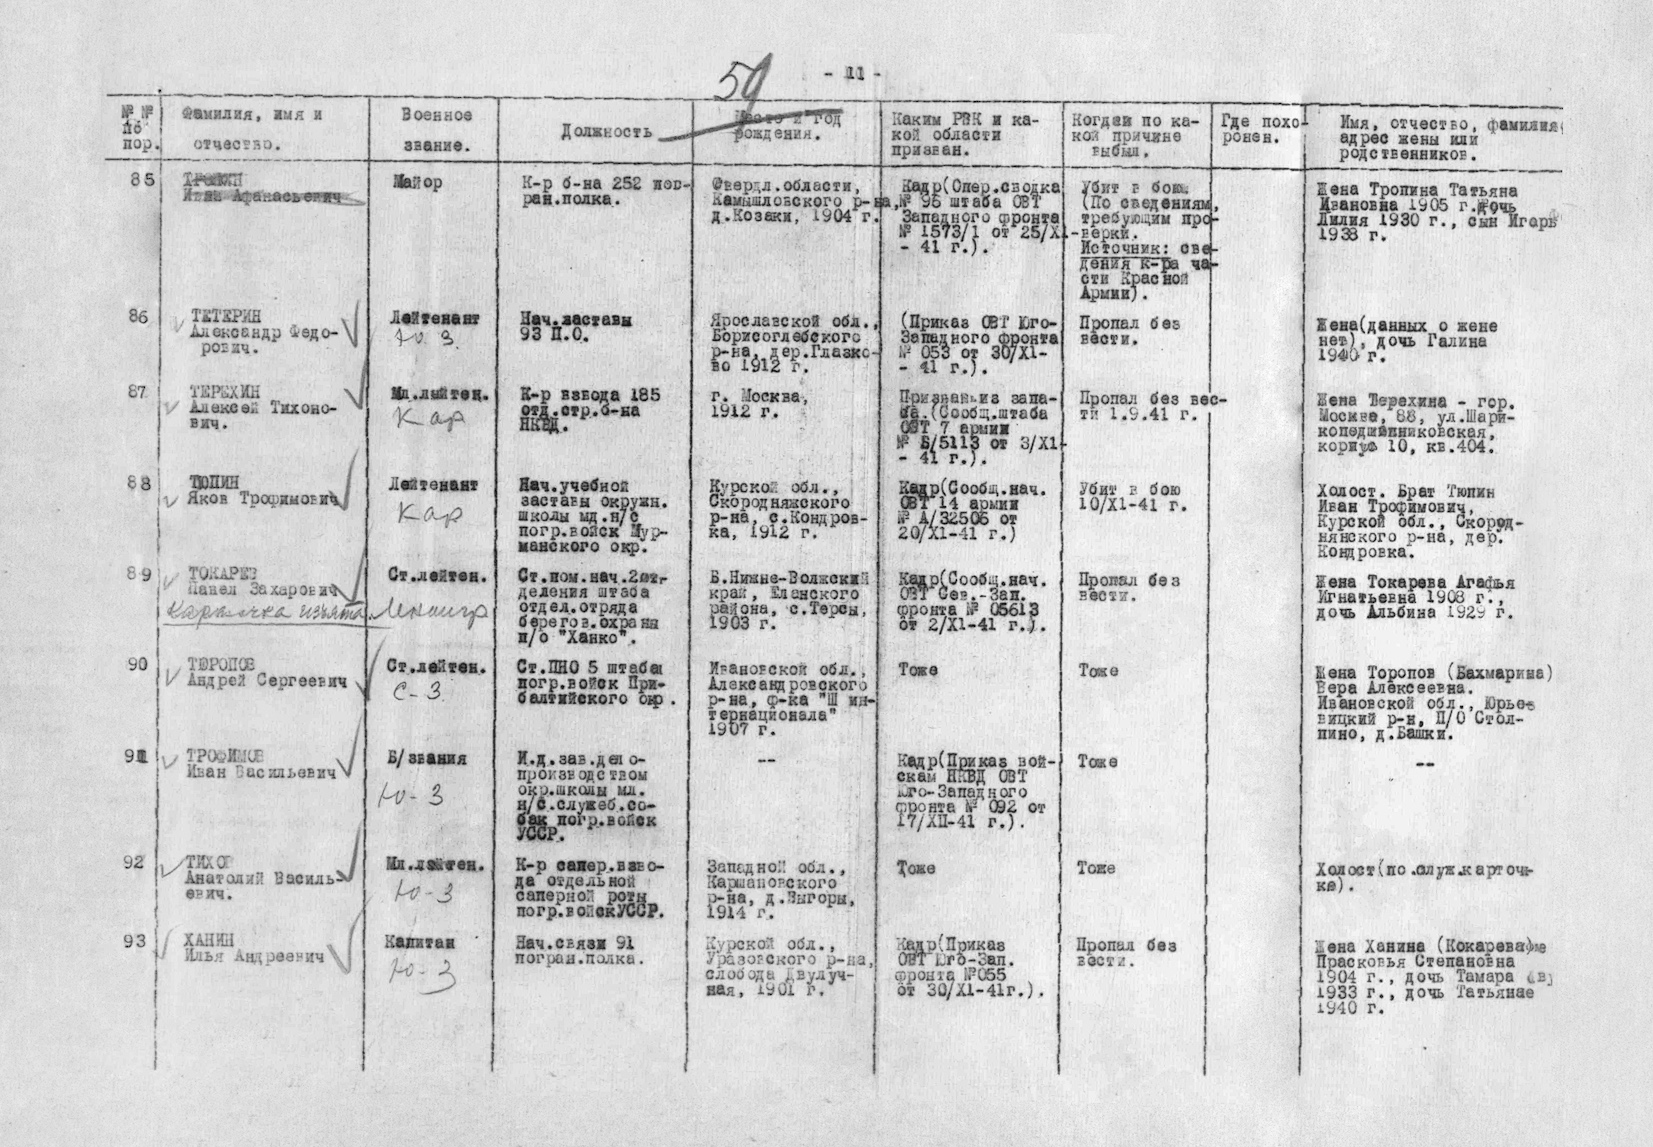 59
- 11 -
№ №
по
пор.
Фамилия, имя и
отчество.
Военное
звание.
Должность
Место и год
рождения.
Каким РВК и ка-
кой области
призван.
Когда и по ка-
кой причине
выбыл.
Где похо-
ронен.
Имя, отчество, фамилия
адрес жены или
родственников.
85
ТРОПИН
Иван Афанасьевич
Майор
К-р б-на 252 пог-
ран.полка.
Свердл.области,
Камышловского р-на,
д.Козаки, 1904 г.
Кадр(Опер.сводка
№ 95 штаба ОВТ
Западного фронта
№ 1573/1 от 25/X1-
- 41 г.).
Убит в бою
(По сведениям,
требующим про-
верки.
Источник: све-
дения к-ра ча-
сти Красной
Армии).
Жена Тропина Татьяна
Ивановна 1905 г. дочь
Лилия 1930 г., сын Игорь
1938 г.
86
ТЕТЕРИН
Александр Федо-
рович.
Лейтенант
Ю. З.
Нач.заставы
93 П.О.
Ярославской обл.,
Борисоглебского
р-на, дер.Глазко-
во 1912 г.
(Приказ ОВТ Юго-
Западного фронта
№ 053 от 30/X1-
- 41 г.).
Пропал без
вести.
Жена(данных о жене
нет), дочь Галина
1940 г.
87
ТЕРЕХИН
Алексей Тихоно-
вич.
Мл.лейтен.
Кар
К-р взвода 185
отд.стр.б-на
НКВД.
г. Москва,
1912 г.
Призван из запа-
са.(Сообщ.штаба
ОВТ 7 армии
№ Б/5113 от 3/X1-
- 41 г.).
Пропал без вес-
ти 1.9.41 г.
Жена Терехина - гор.
Москва, 88, ул.Шари-
коподшипниковская,
корпус 10, кв.404.
88
ТЮПИН
Яков Трофимович
Лейтенант
Кар
Нач.учебной
заставы окружн.
школы мл.н/с
погр.войск Мур-
манского окр.
Курской обл.,
Скороднянского
р-на, с.Кондров-
ка, 1912 г.
Кадр(Сообщ.нач.
ОВТ 14 армии
№ А/32506 от
20/X1-41 г.)
Убит в бою
10/X1-41 г.
Холост. Брат Тюпин
Иван Трофимович,
Курской обл., Скород-
нянского р-на, дер.
Кондровка.
89
ТОКАРЕВ
Павел Захарович
карточка изъята
Ст.лейтен.
Ленингр
Ст.пом.нач.2 от-
деления штаба
отдел.отряда
берегов.охраны
п/о "Ханко".
Б.Нижне-Волжский
край, Еланского
района, с.Терсы,
1903 г.
Кадр(Сообщ.нач.
ОВТ Сев.-Зап.
фронта № 05613
от 2/X1-41 г.).
Пропал без
вести.
Жена Токарева Агафья
Игнатьевна 1908 г.,
дочь Альбина 1929 г.
90
ТОРОПОВ
Андрей Сергеевич
Ст.лейтен.
С-З
Ст.ПНО 5 штаба
погр.войск При-
балтийского окр.
Ивановской обл.,
Александровского
р-на, ф-ка "Ш ин-
тернационала"
1907 г.
Тоже
Тоже
Жена Торопов (Бахмарина)
Вера Алексеевна.
Ивановской обл., Юрье-
вицкий р-н, П/О Стол-
пино, д.Башки.
91
ТРОФИМОВ
Иван Васильевич
Б/звания
Ю-З
И.д.зав.дело-
производством
окр.школы мл.
н/с.служеб.со-
бак погр.войск
УССР.
--
Кадр(Приказ вой-
скам НКВД ОВТ
Юго-Западного
фронта № 092 от
17/XII-41 г.).
Тоже
--
92
ТИХОВ
Анатолий Василь-
евич.
Мл.лейтен.
Ю-З
К-р сапер.взво-
да отдельной
саперной роты
погр.войскУССР.
Западной обл.,
Кармановского
р-на, д.Выгоры,
1914 г.
Тоже
Тоже
Холост(по служ.карточ-
ке).
93
ХАНИН
Илья Андреевич
Капитан
Ю-З
Нач.связи 91
погран.полка.
Курской обл.,
Уразовского р-на,
слобода Двулуч-
ная, 1901 г.
Кадр(Приказ
ОВТ Юго-Зап.
фронта №055
от 30/X1-41г.).
Пропал без
вести.
Жена Ханина (Кокарева)
Прасковья Степановна
1904 г., дочь Тамара
1933 г., дочь Татьяна
1940 г.